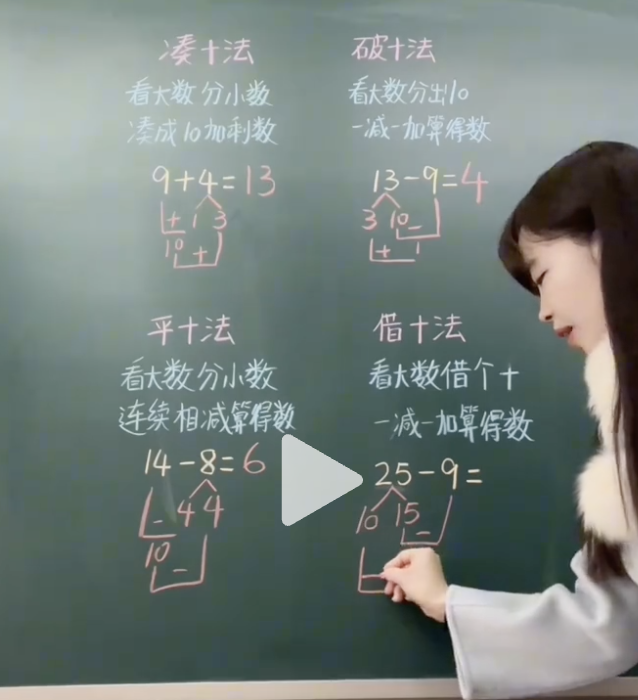 凑十法
看大数分小数
凑成10加剩数
9+4=13
+ 1 3
10 +
破十法
看大数分出10
一减一加算得数
13-9=4
3 10 -
+ 1
平十法
看大数分小数
连续相减算得数
14-8=6
- 4 4
10 -
借十法
看大数借个十
一减一加算得数
25-9=
10 15
-